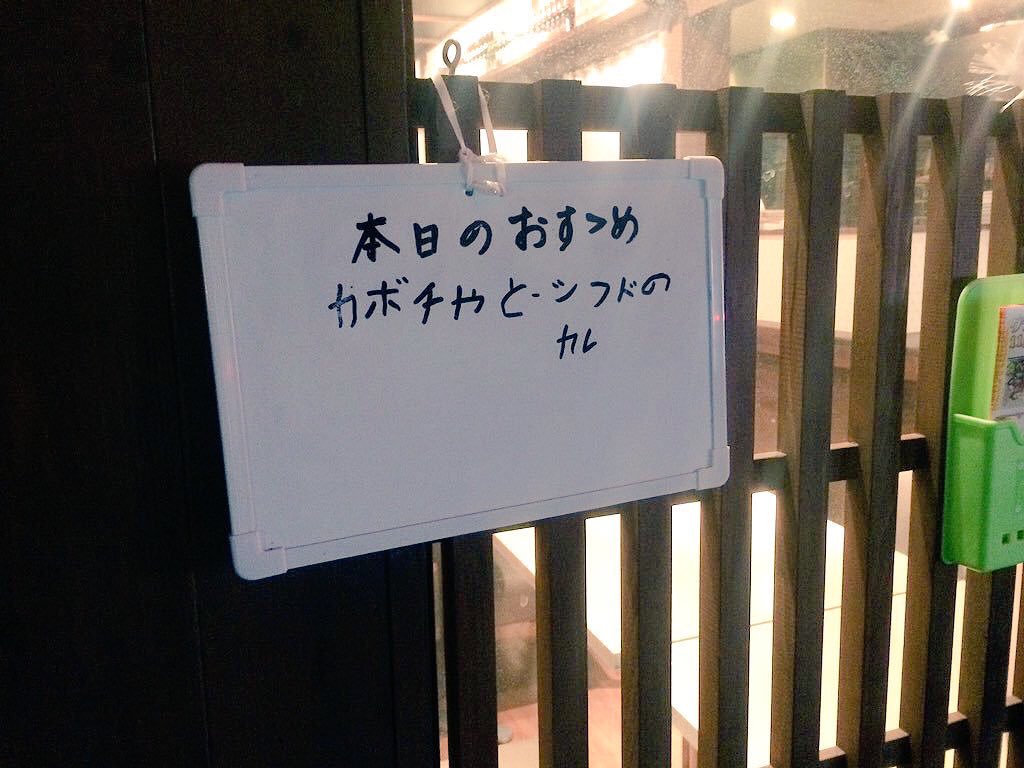 本日のおすゝめ
カボチャと-シフドの
カレ